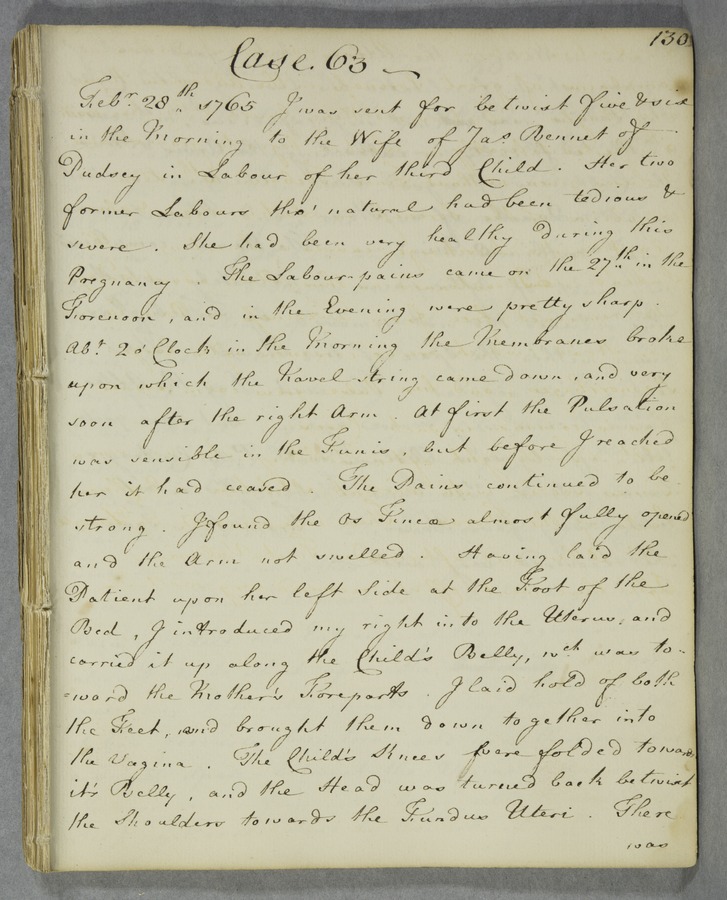 130
Case. 63
Febr. 28th 1765 I was sent for betwixt five & six
in the Morning to the Wife of Jas Bennet of
Pudsey in Labour of her third Child. Her two
former Labours tho' natural had been tedious &
severe. She had been very healthy during this
Pregnancy. The Labour-pains came on the 27th in the
Forenoon, and in the Evening were pretty sharp.
Abt. 2 o'Clock in the Morning the Membranes broke
upon which the Navel string came down, and very
soon after the right Arm. At first the Pulsation
was sensible in the Funis, but before I reached
her it had ceased. The Pains continued to be
strong. I found the Os Tincæ almost fully opened
and the Arm not swelled. Having laid the
Patient upon her left Side at the Foot of the
Bed, I introduced my right into the Uterus, and
carried it up along the Child's Belly, wch was to-
=ward the Mother's Foreparts. I laid hold of both
the Feet, and brought them down together into
the Vagina. The Child's Knees were folded toward
it's Belly, and the Head was turned back betwixt
the Shoulders towards the Fundus Uteri. There
was